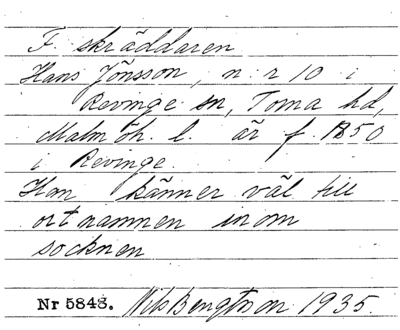 F. skräddaren
Hans Jönsson, n:r 10 i
Revinge sn, Torna hd,
Malmöh. l. är f. 1850
i Revinge.
Han känner väl till
ortnamnen inom
socknen
Nr 5848. Nils Bengtsson 1935.